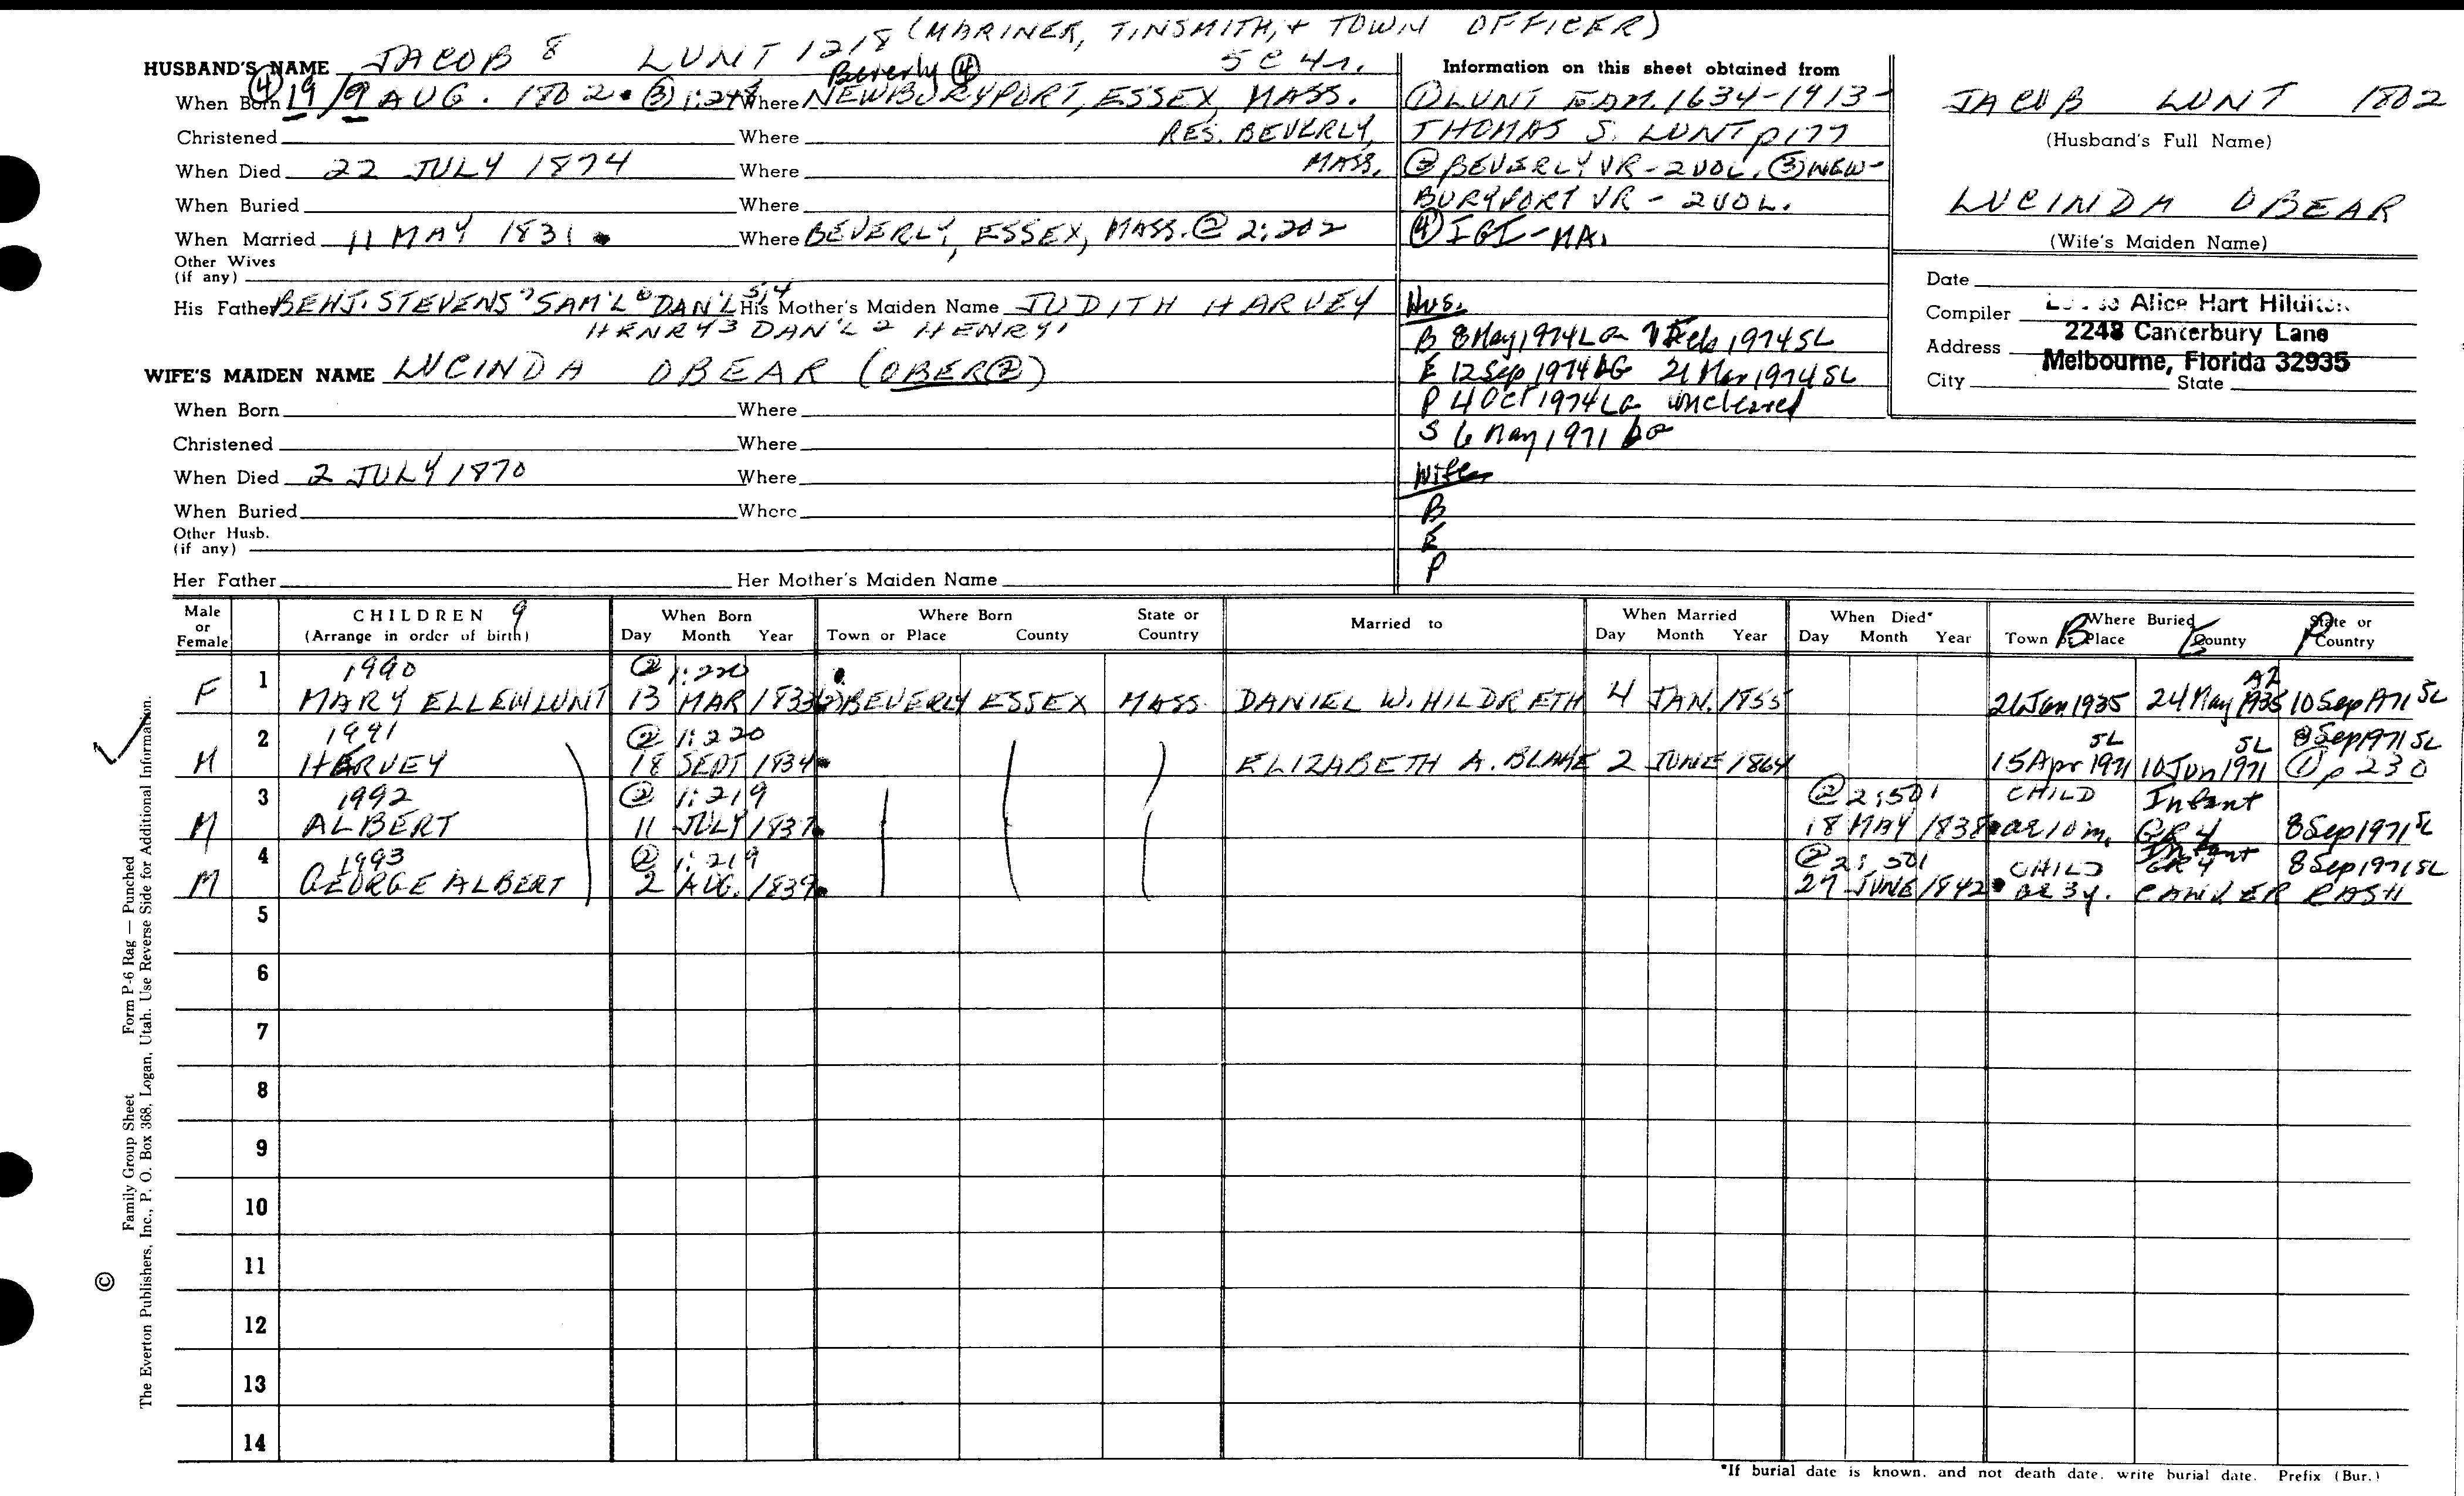 (MARINER, TINSMITH, + TOWN OFFICER)
HUSBAND'S NAME JACOB 8 LUNT 1218 5C 4r.
Beverly ④
④ When Born 19/9 AUG. 1802. ③ 1:248 Where NEWBURYPORT, ESSEX, MASS.
Christened Where RES. BEVERLY,
When Died 22 JULY 1874 Where MASS.
When Buried Where
When Married 11 MAY 1831. Where BEVERLY, ESSEX, MASS. ② 2:202
Other Wives
(if any)
His Father BENJ. STEVENS 7 SAM'L 6 DAN'L 5,4 His Mother's Maiden Name JUDITH HARVEY
HENRY 3 DAN'L 2 HENRY 1
WIFE'S MAIDEN NAME LUCINDA OBEAR (OBER ②)
When Born Where
Christened Where
When Died 2 JULY 1870 Where
When Buried Where
Other Husb.
(if any)
Her Father Her Mother's Maiden Name
Information on this sheet obtained from
① LUNT FAM. 1634-1913-
THOMAS S. LUNT p177
② BEVERLY VR - 2 VOL. ③ NEW-
BURYPORT VR - 2 VOL.
④ IGI - MA.
Hus.
B 8 May 1974 LG 7 Feb 1974 SL
E 12 Sep 1974 LG 21 Mar 1974 SL
P 4 Oct 1974 LG uncleared
S 6 May 1971
Wife
B
E
P
JACOB LUNT 1802
(Husband's Full Name)
LUCINDA OBEAR
(Wife's Maiden Name)
Date
Compiler Alice Hart
2248 Canterbury Lane
Address
Melbourne, Florida 32935
City State
Male or Female CHILDREN 9 (Arrange in order of birth) When Born Day Month Year Where Born Town or Place County State or Country Married to When Married Day Month Year When Died* Day Month Year Where Buried Town or Place County State or Country B E P
1990 ② 1:220 AZ
F 1 MARY ELLEN LUNT 13 MAR 1833 ② BEVERLY ESSEX MASS. DANIEL W. HILDRETH 4 JAN. 1855 21 Jan 1935 24 May 1935 10 Sep 1971 SL
2 1991 ② 1:220 SL SL 8 Sep 1971 SL
M HARVEY 18 SEPT 1834. ELIZABETH A. BLAKE 2 JUNE 1864 15 Apr 1971 10 Jun 1971 ① p 230
3 1992 ② 1:219 ② 2:501 CHILD Infant
M ALBERT 11 JULY 1837. 18 MAY 1838. ae 10 m, GR 4 8 Sep 1971 SL
4 1993 ② 1:219 ② 2:501 CHILD Infant GR 4 8 Sep 1971 SL
M GEORGE ALBERT 2 AUG. 1839. 27 JUNE 1842. ae 3y. CANKER RASH
5
6
7
8
9
10
11
12
13
14
*If burial date is known, and not death date, write burial date. Prefix (Bur.)
© Family Group Sheet Form P-6 Rag — Punched
The Everton Publishers, Inc., P. O. Box 368, Logan, Utah. Use Reverse Side for Additional Information.